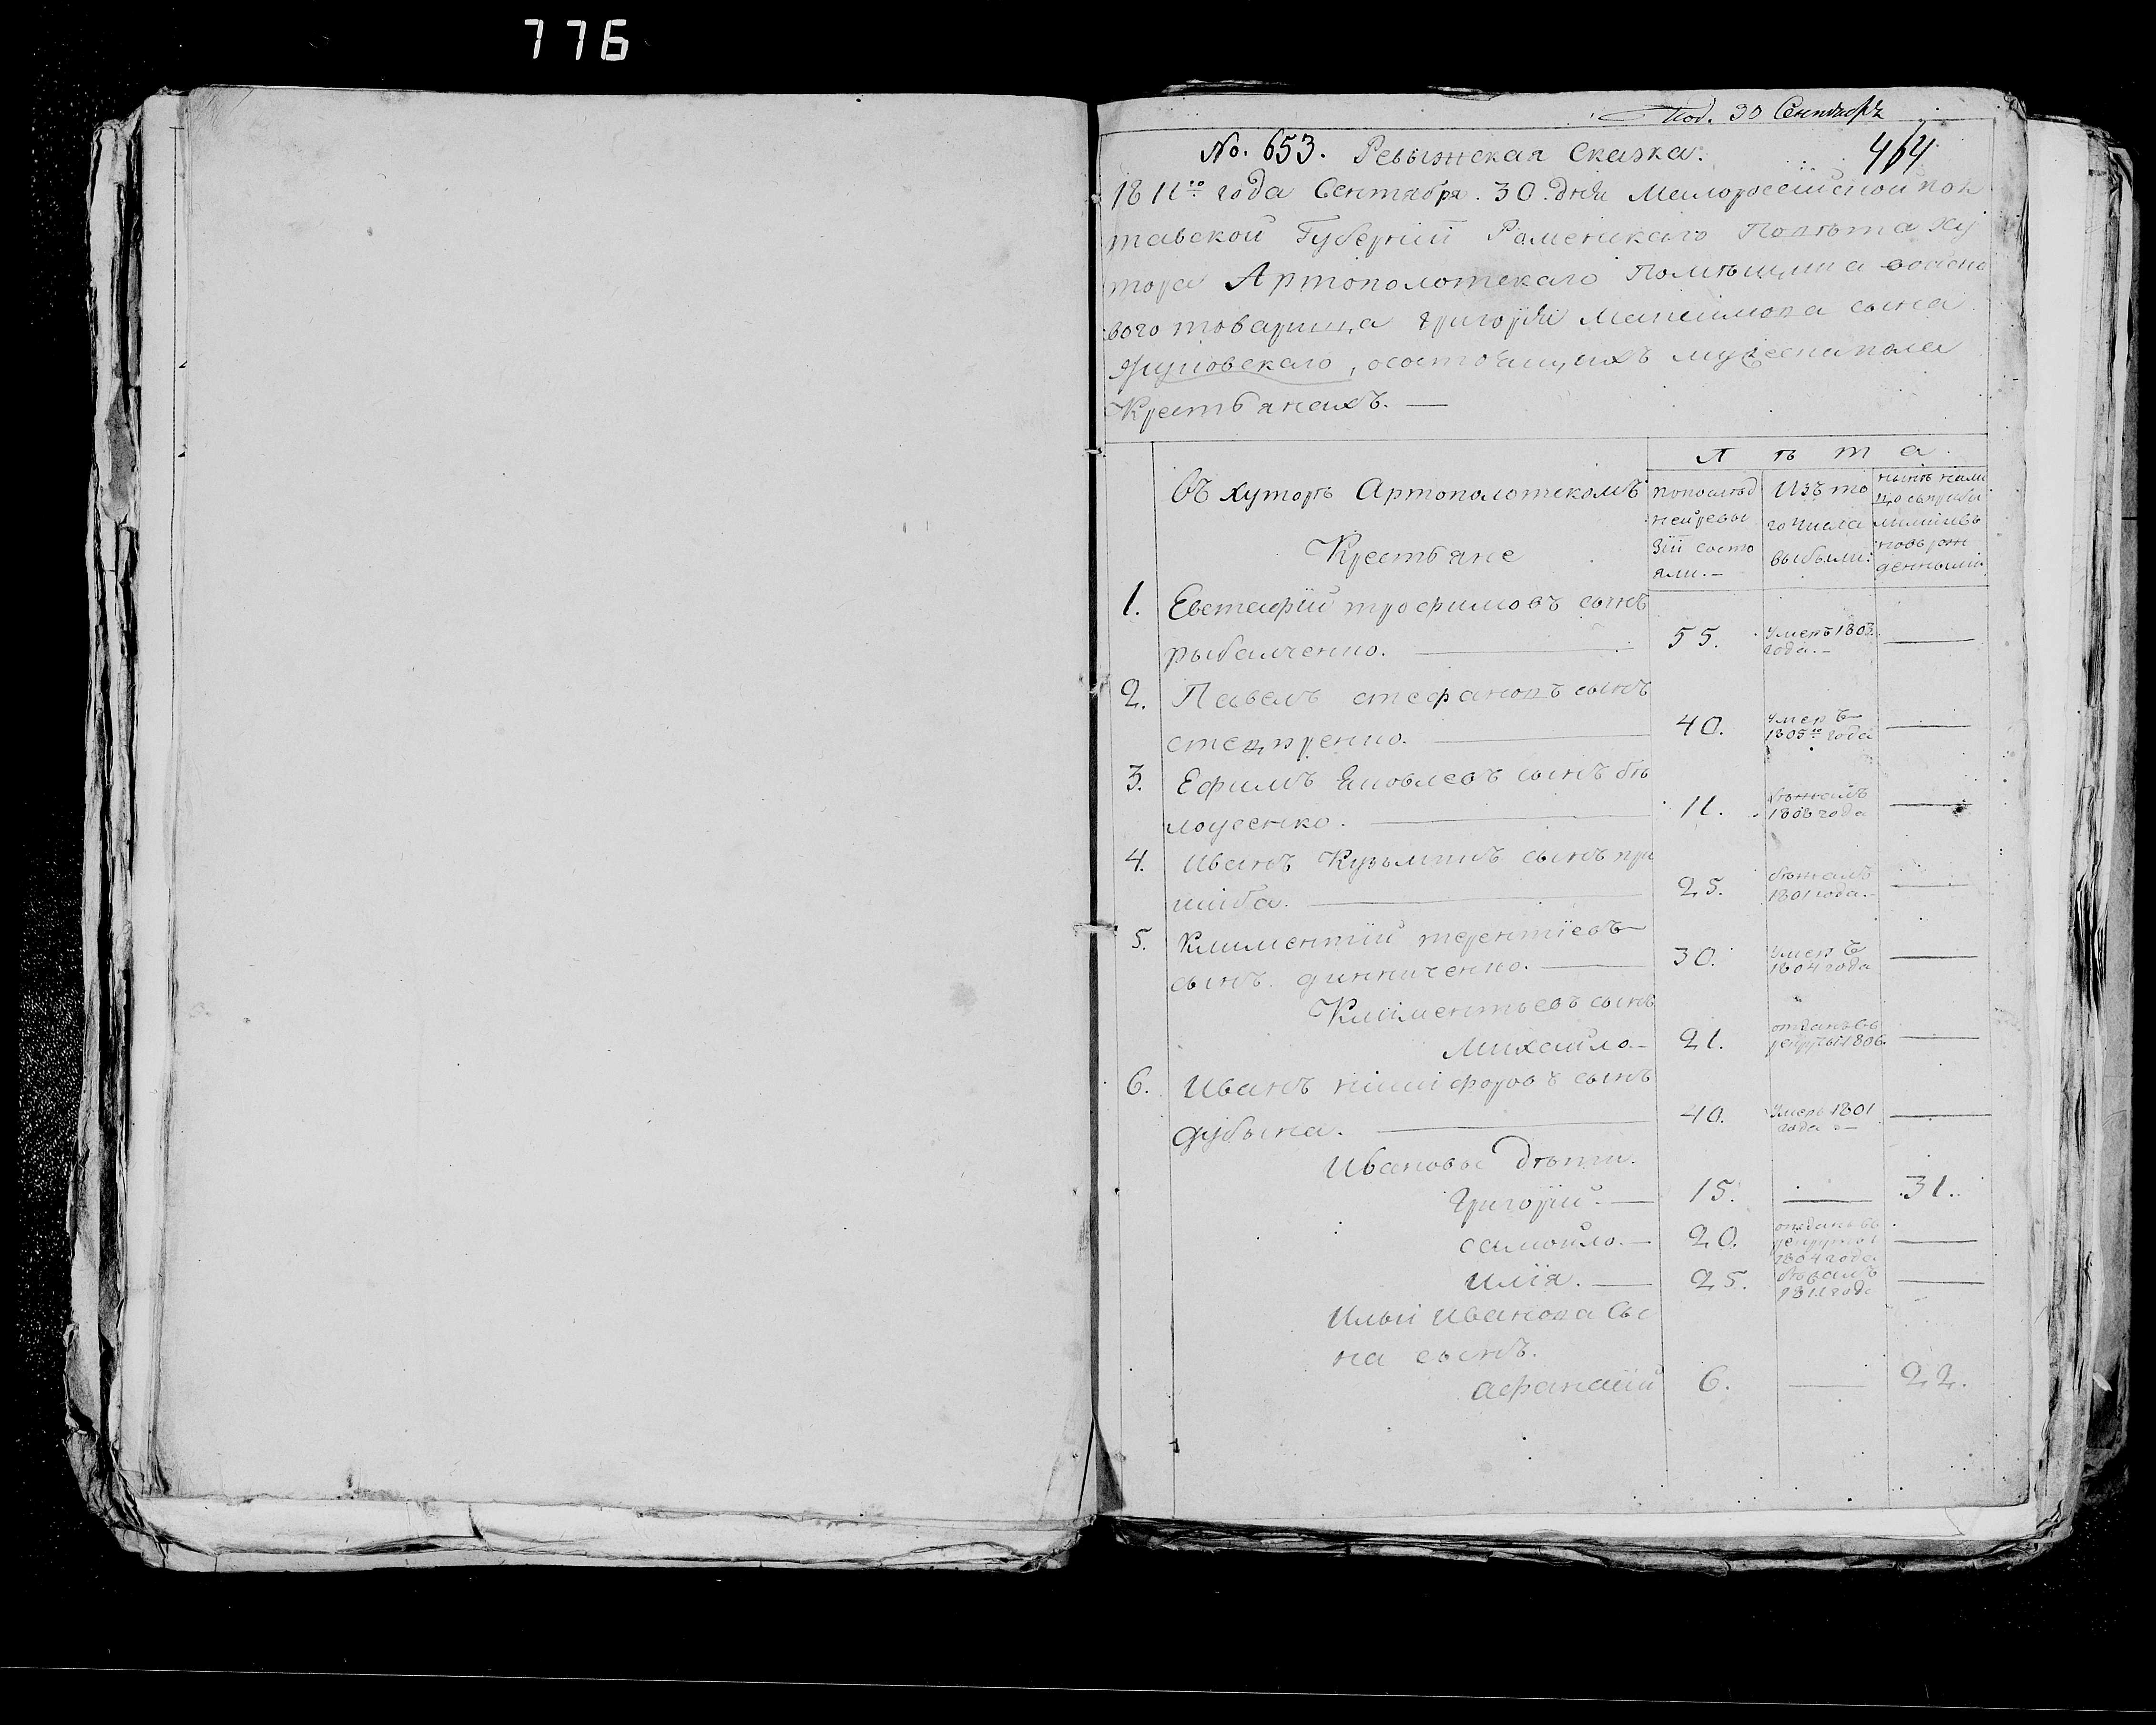 776
Под. 30 Сентября
No. 653. Ревызская Сказка.
464
1811го года Сентября. 30. дня Малороссійской пол
тавской Губерніи Роменскаго Повѣта Ху
тора Артополотскаго Помѣщика
вого товарища григорія Максимова сына
, осостоящихъ мужеска пола
Крестьянахъ. —
Л ѣ т а.
Въ хуторѣ Артополотскомъ
Крестьяне
попослѣд
ней ревы
зіи состо
яли. —
Изъ то
го числа
выбыли:
нынѣ нали
цо
новорож
денными
1. Евстафій трофимовъ сынъ
рыбалченко. — 55. Умеръ 1803.
года. — —
2. Павелъ стефановъ сынъ
стецпренко. — 40. Умеръ
1805го года —
3. Ефимъ Яковлевъ сынъ бѣ
лоусенко. — 11. бѣжалъ
1808 года —
4. Иванъ Кузьминъ сынъ при
шиба. — 25. бѣжалъ
1801 года. — —
5. Климентій терентіевъ
сынъ динниченко. — 30. Умеръ
1804 года —
Климентьевъ сынъ
Михайло — 21. отданъ въ
рекруты 1806. —
6. Иванъ никифоровъ сынъ
дубына. — 40. Умеръ 1801
года — —
Ивановы дѣти.
Григорій. — 15. — 31.
самойло. — 20. отданъ въ
рекруты
1804 года —
Илія. — 25. бѣжалъ
1811 года —
Ильи Иванова Сы
на сынъ.
афанасій 6. — 22.